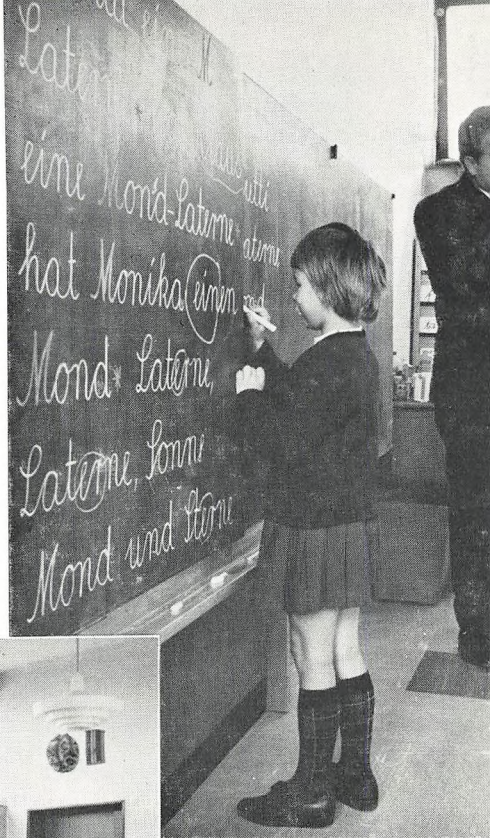 Latern
eine Mond-Laterne aterne
hat Monika einen
Mond Laterne,
Laterne, Sonne
Mond und Sterne